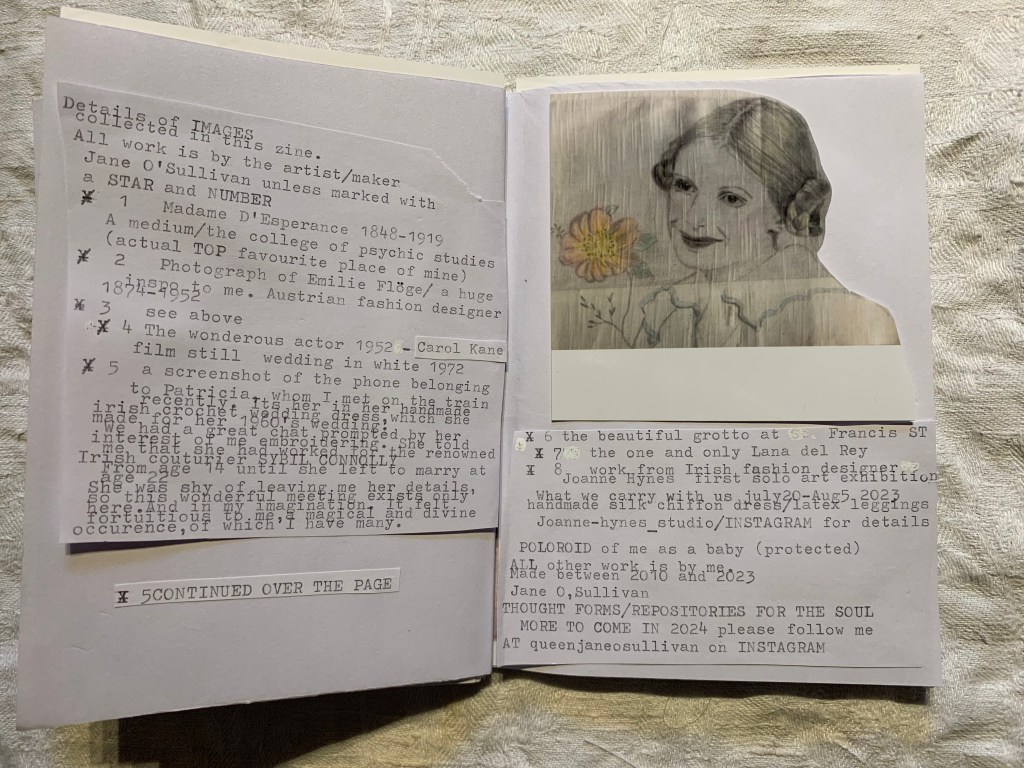 Details of IMAGES
collected in this zine.
All work is by the artist/maker
Jane O'Sullivan unless marked with
a STAR and NUMBER
* 1 Madame D'Esperance 1848-1919
A medium/the college of psychic studies
(actual TOP favourite place of mine)
* 2 Photograph of Emilie Flöge/ a huge
inspo to me. Austrian fashion designer
1874-1952
* 3 see above
* 4 The wonderous actor 1952 - Carol Kane
film still wedding in white 1972
* 5 a screenshot of the phone belonging
to Patricia, whom I met on the train
recently. Its her in her handmade
irish crochet wedding dress, which she
made for her 1960's wedding.
We had a great chat prompted by her
interest of me embroidering. She told
me that she had worked for the renowned
Irish couturier SYBIL CONNOLLY
From age 14 until she left to marry at
age 22
She was shy of leaving me her details,
so this wonderful meeting exists only
here. And in my imagination, it felt
fortuitious to me, a magical and divine
occurence, of which I have many.
* 5CONTINUED OVER THE PAGE
* 6 the beautiful grotto at Francis ST
* 7 the one and only Lana del Rey
* 8 work from Irish fashion designer
Joanne Hynes first solo art exhibition
What we carry with us july20-Aug5 2023
handmade silk chiffon dress/latex leggings
Joanne-hynes_studio/INSTAGRAM for details
POLOROID of me as a baby (protected)
ALL other work is by me.
Made between 2010 and 2023
Jane O,Sullivan
THOUGHT FORMS/REPOSITORIES FOR THE SOUL
MORE TO COME IN 2024 please follow me
AT queenjaneosullivan on INSTAGRAM